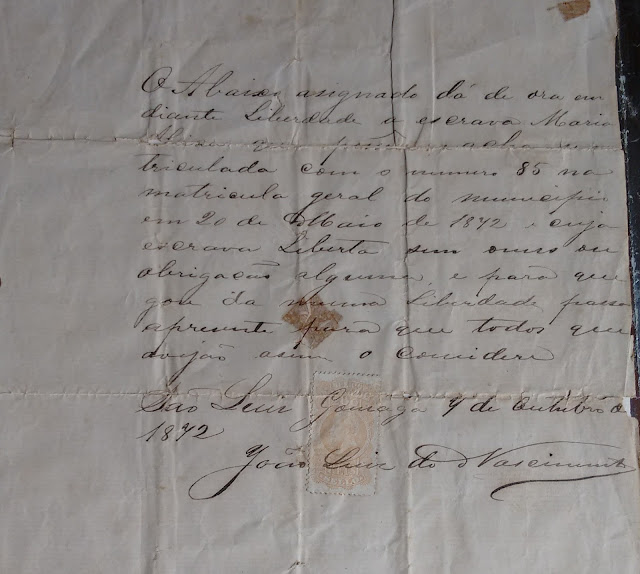 O Abaixo asignado dá de ora em
diante Liberdade a escrava Maria
que acha ma
triculada com o numero 85 na
matricula geral do municipio
em 20 de Maio de 1872 e cuja
escrava Liberta sem onus ou
obrigação alguma, e para que
gou da mesma Liberdade passo
a presente para que todos que
avejão asim o considere
São Luiz Gonzaga 7 de Outubro d
1872
João Luiz do Nascimento